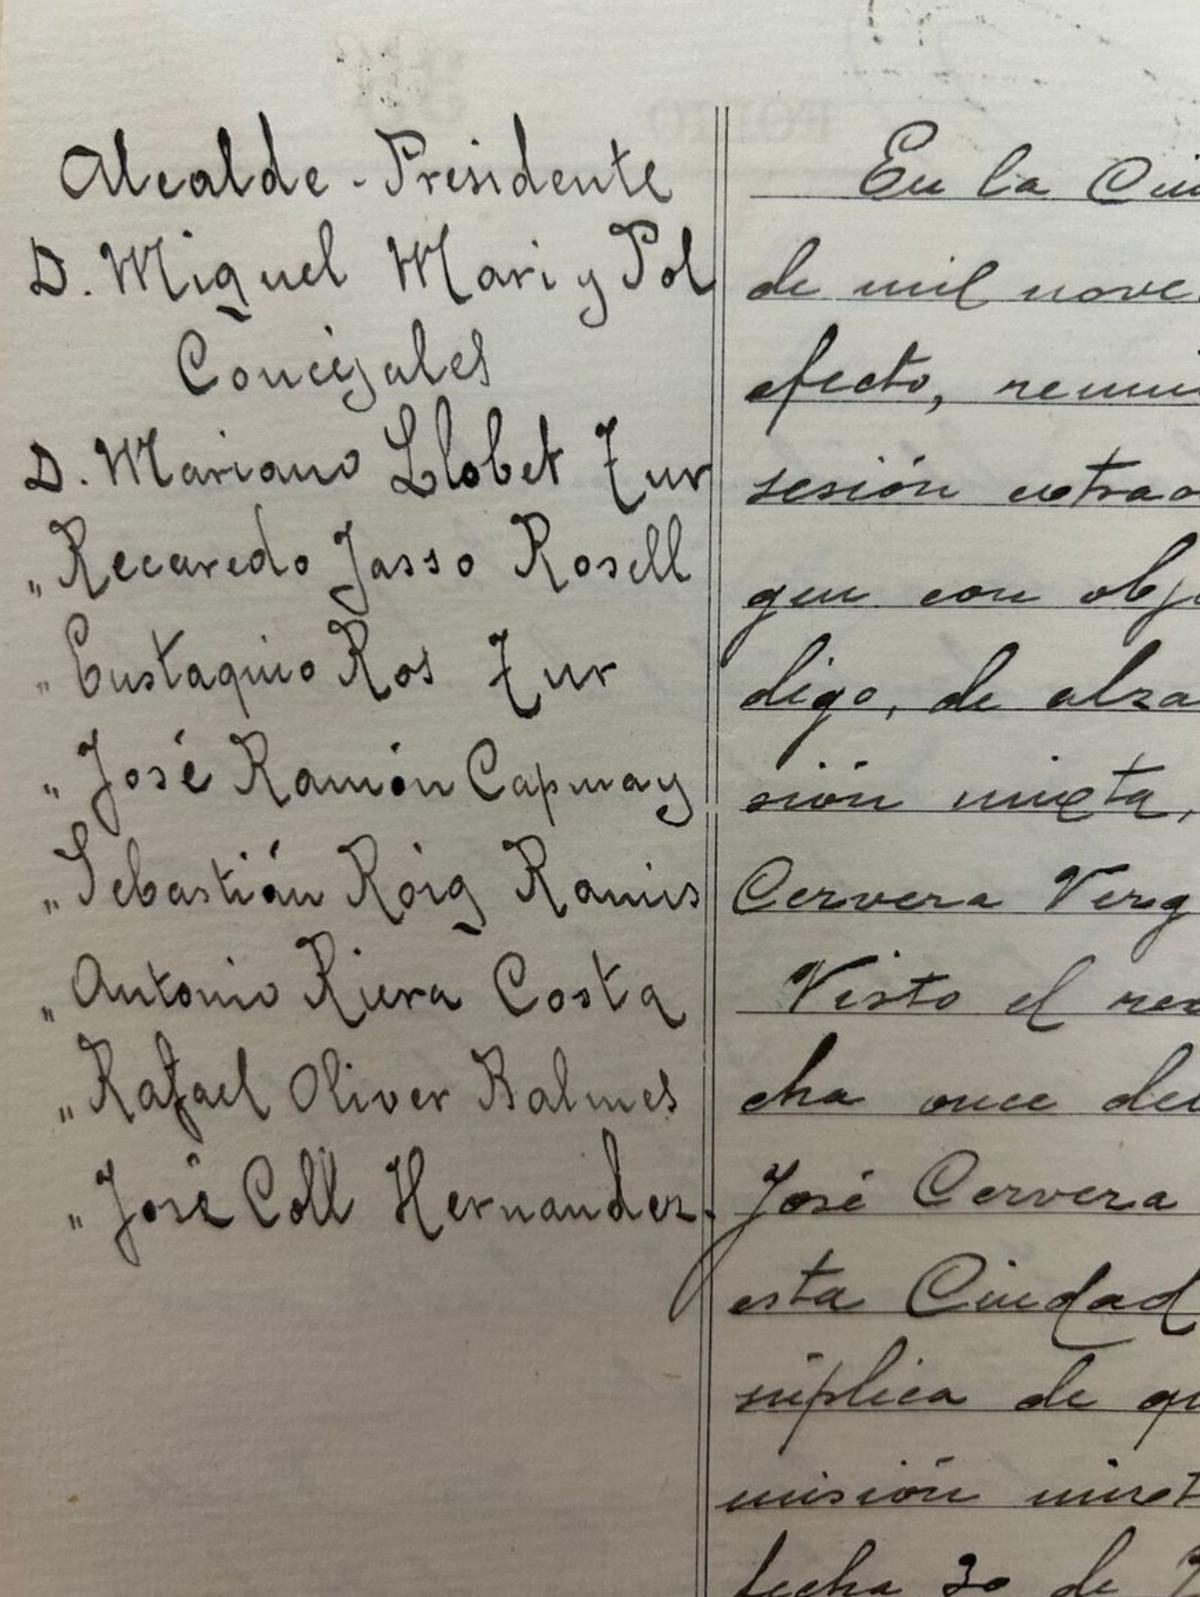 Alcalde-Presidente
D. Miguel Mari y Pol
Concejales
D. Mariano Llobet Tur
„ Recaredo Jasso Rosell
„ Eustaquio Ros Tur
„ José Ramón Capmay
„ Sebastián Róig Ramis
„ Antonio Riera Costa
„ Rafael Oliver Balmes
„ José Coll Hernandez.
En la Ciu
de mil nove
efecto, reuni
sesión extrao
gen con obje
digo, de alza
sión mixta,
Cervera Verg
Visto el rec
cha once del
José Cervera
esta Ciudad
súplica de qu
misión mixt
fecha 30 de